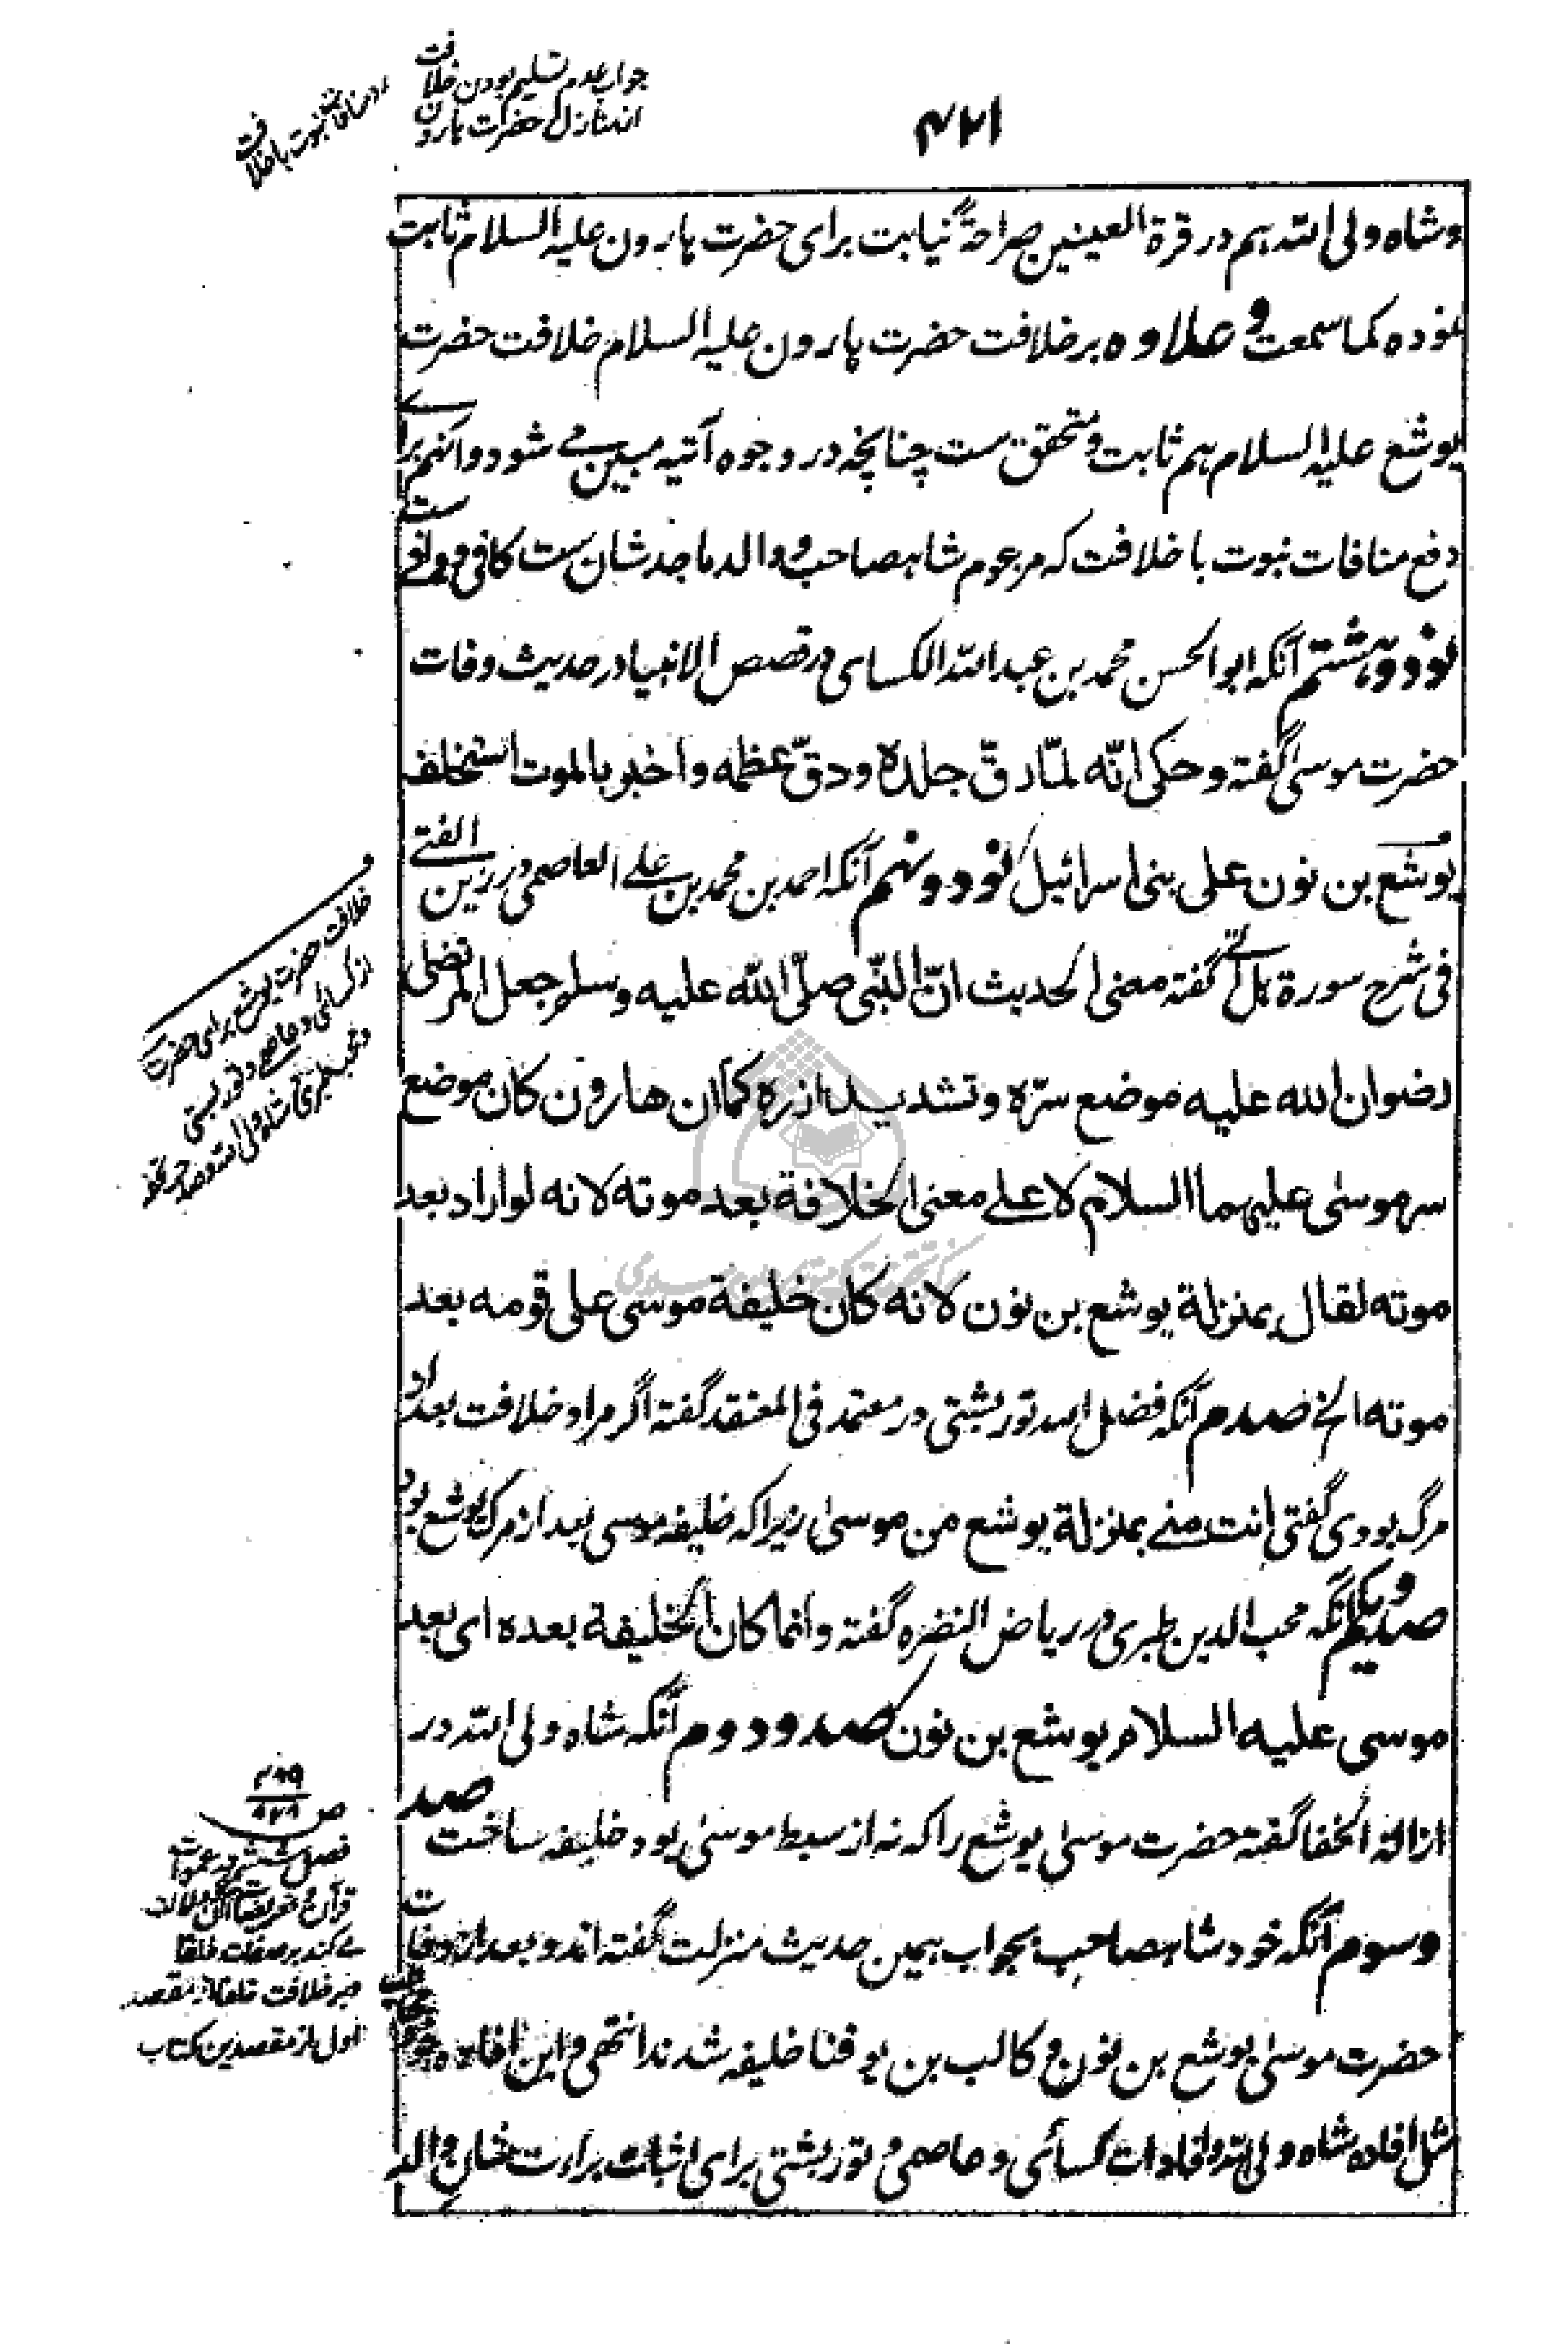 ۴۲۱
جواب عدم تسلیم بودن خلافت
از منازل حضرت هارون
نبوت با خلافت
وشاه ولی الله هم در قرة العینین صراحةً نیابت برای حضرت هارون علیه السلام ثابت
نموده کما سمعت و علاوه بر خلافت حضرت هارون علیه السلام خلافت حضرت
یوشع علیه السلام هم ثابت و متحقق ست چنانچه در وجوه آتیه مبین می شود و آنهم برای
دفع منافات نبوت با خلافت که مزعوم شاهصاحب و والد ماجد شان ست کافی و وافی ست
نود و هشتم آنکه ابو الحسن محمد بن عبد الله الکسای در قصص الانبیا در حدیث وفات
حضرت موسی گفته و حکی انّه لمّا رقّ جلده ودقّ عظمه واخبر بالموت استخلف
یوشع بن نون علی بنی اسرائیل نود و نهم آنکه احمد بن محمد بن علی العاصمی در زین الفتی
فی شرح سورة هل اتی گفته معنی الحدیث انّ النّبی صلّی الله علیه وسلم جعل المرتضی
رضوان الله علیه موضع سرّه وتشدید ازره کما ان هارون کان موضع
سر موسی علیهما السلام لا علی معنی الخلافة بعد موته لانه لو اراد بعد
موته لقال بمنزلة یوشع بن نون لانه کان خلیفة موسی علی قومه بعد
موته الخ صدم آنکه فضل الله توربشتی در معتمد فی المعتقد گفته اگر مراد خلافت بعد از
مرگ بودی گفتی انت منی بمنزلة یوشع من موسیٰ زیرا که خلیفه موسی بعد از مرگ یوشع بود
صد و یکم آنکه محب الدین طبری در ریاض النضره گفته وانما کان الخلیفة بعده ای بعد
موسی علیه السلام یوشع بن نون صد و دوم آنکه شاه ولی الله در
ازالة الخفا گفته حضرت موسیٰ یوشع را که نه از سبط موسیٰ بود خلیفه ساخت صد
وسوم آنکه خود شاهصاحب بجواب همین حدیث منزلت گفته اند و بعد از وفات
حضرت موسیٰ یوشع بن نون و کالب بن یوفنا خلیفه شدند انتهی و این افاده
مثل افاده شاه ولی الله و افادات کسائی و عاصمی و توربشتی برای اثبات براءت شان و الد
و
خلافت حضرت یوشع برای حضرت
از کسائی و عاصمی و توربشتی
و محب طبری و شاه ولی الله و
ص
فصل ششم در عمومات
قرآن و تعریضات
می کند بر صفات خلفا
بر خلافت خلفا از مقصد
اول از مقصدین کتاب